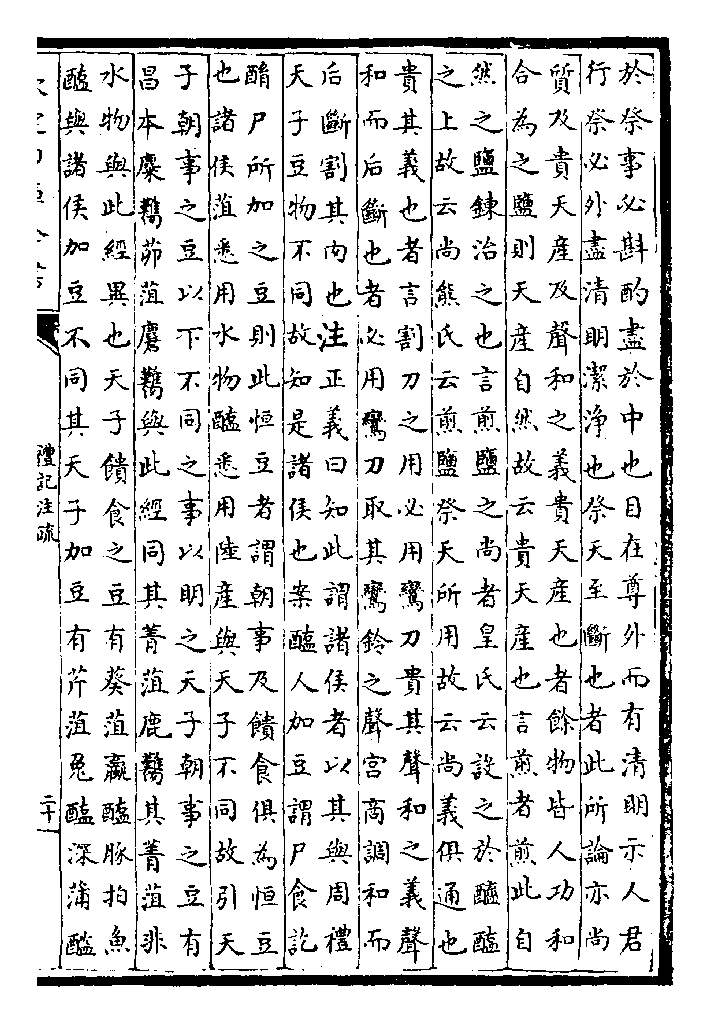 於祭事必斟酌盡於中也目在尊外而有清明示人君
行祭必外盡清明潔淨也祭天至斷也者此所論亦尚
質及貴天產及聲和之義貴天產也者餘物皆人功和
合為之鹽則天產自然故云貴天產也言煎者煎此自
然之鹽鍊治之也言煎鹽之尚者皇氏云設之於醯醢
之上故云尚熊氏云煎鹽祭天所用故云尚義俱通也
貴其義也者言割刀之用必用鸞刀貴其聲和之義聲
和而后斷也者必用鸞刀取其鸞鈴之聲宫商調和而
后斷割其肉也注正義曰知此謂諸侯者以其與周禮
天子豆物不同故知是諸侯也案醢人加豆謂尸食訖
酳尸所加之豆則此恒豆者謂朝事及饋食俱為恒豆
也諸侯菹悉用水物醢悉用陸產與天子不同故引天
子朝事之豆以下不同之事以明之天子朝事之豆有
昌本麋臡茆菹麇臡與此經同其菁菹鹿臡其菁菹非
水物與此經異也天子饋食之豆有葵菹蠃醢豚拍魚
醢與諸侯加豆不同其天子加豆有芹菹兔醢深蒲醓
禮記注疏